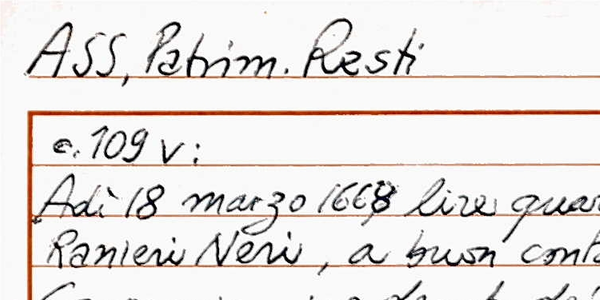 ASS, Patrim. Resti
c. 109 v:
Adì 18 marzo 1668 lire
Ranieri Neri, a buon